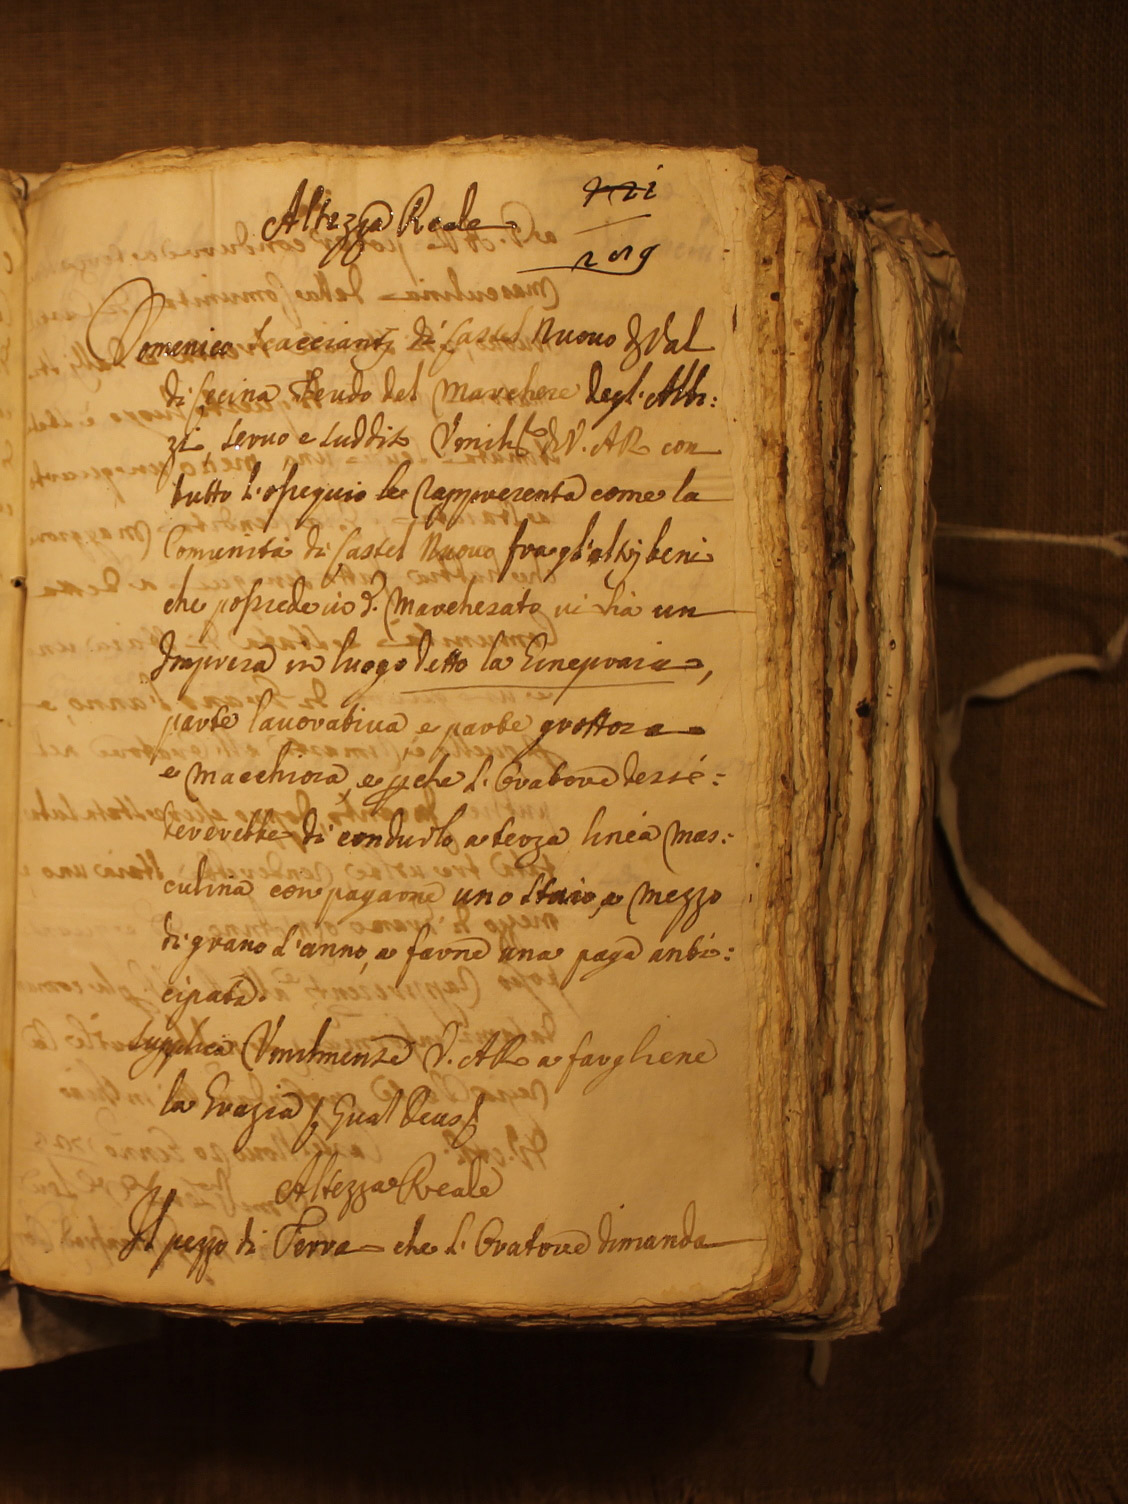 Altezza Reale
209
Domenico Scaccianti di Castel Nuovo di Val
di Cecina Feudo del Marchese degl'Albi:
zi, servo e suddito Umiliss.º di V. AR con
tutto l'ossequio le rappresenta come la
Comunità di Castel Nuovo fra gl'altrj beni
che possiede in d.º Marchesato vi hà un
Impresa in luogo detto la Ginepraia,
parte lavorativa e parte grottosa
e macchiosa, e pche l'Oratore desi:
dererebbe di condurlo a terza linea mas:
culina con pagarne uno staio, e mezzo
di grano l'anno, e farne una paga anti:
cipata.
Supplica Umilmente V. AR a fargliene
la Grazia, Qual Deus
Altezza Reale
Il pezzo di Terra che l'Oratore dimanda